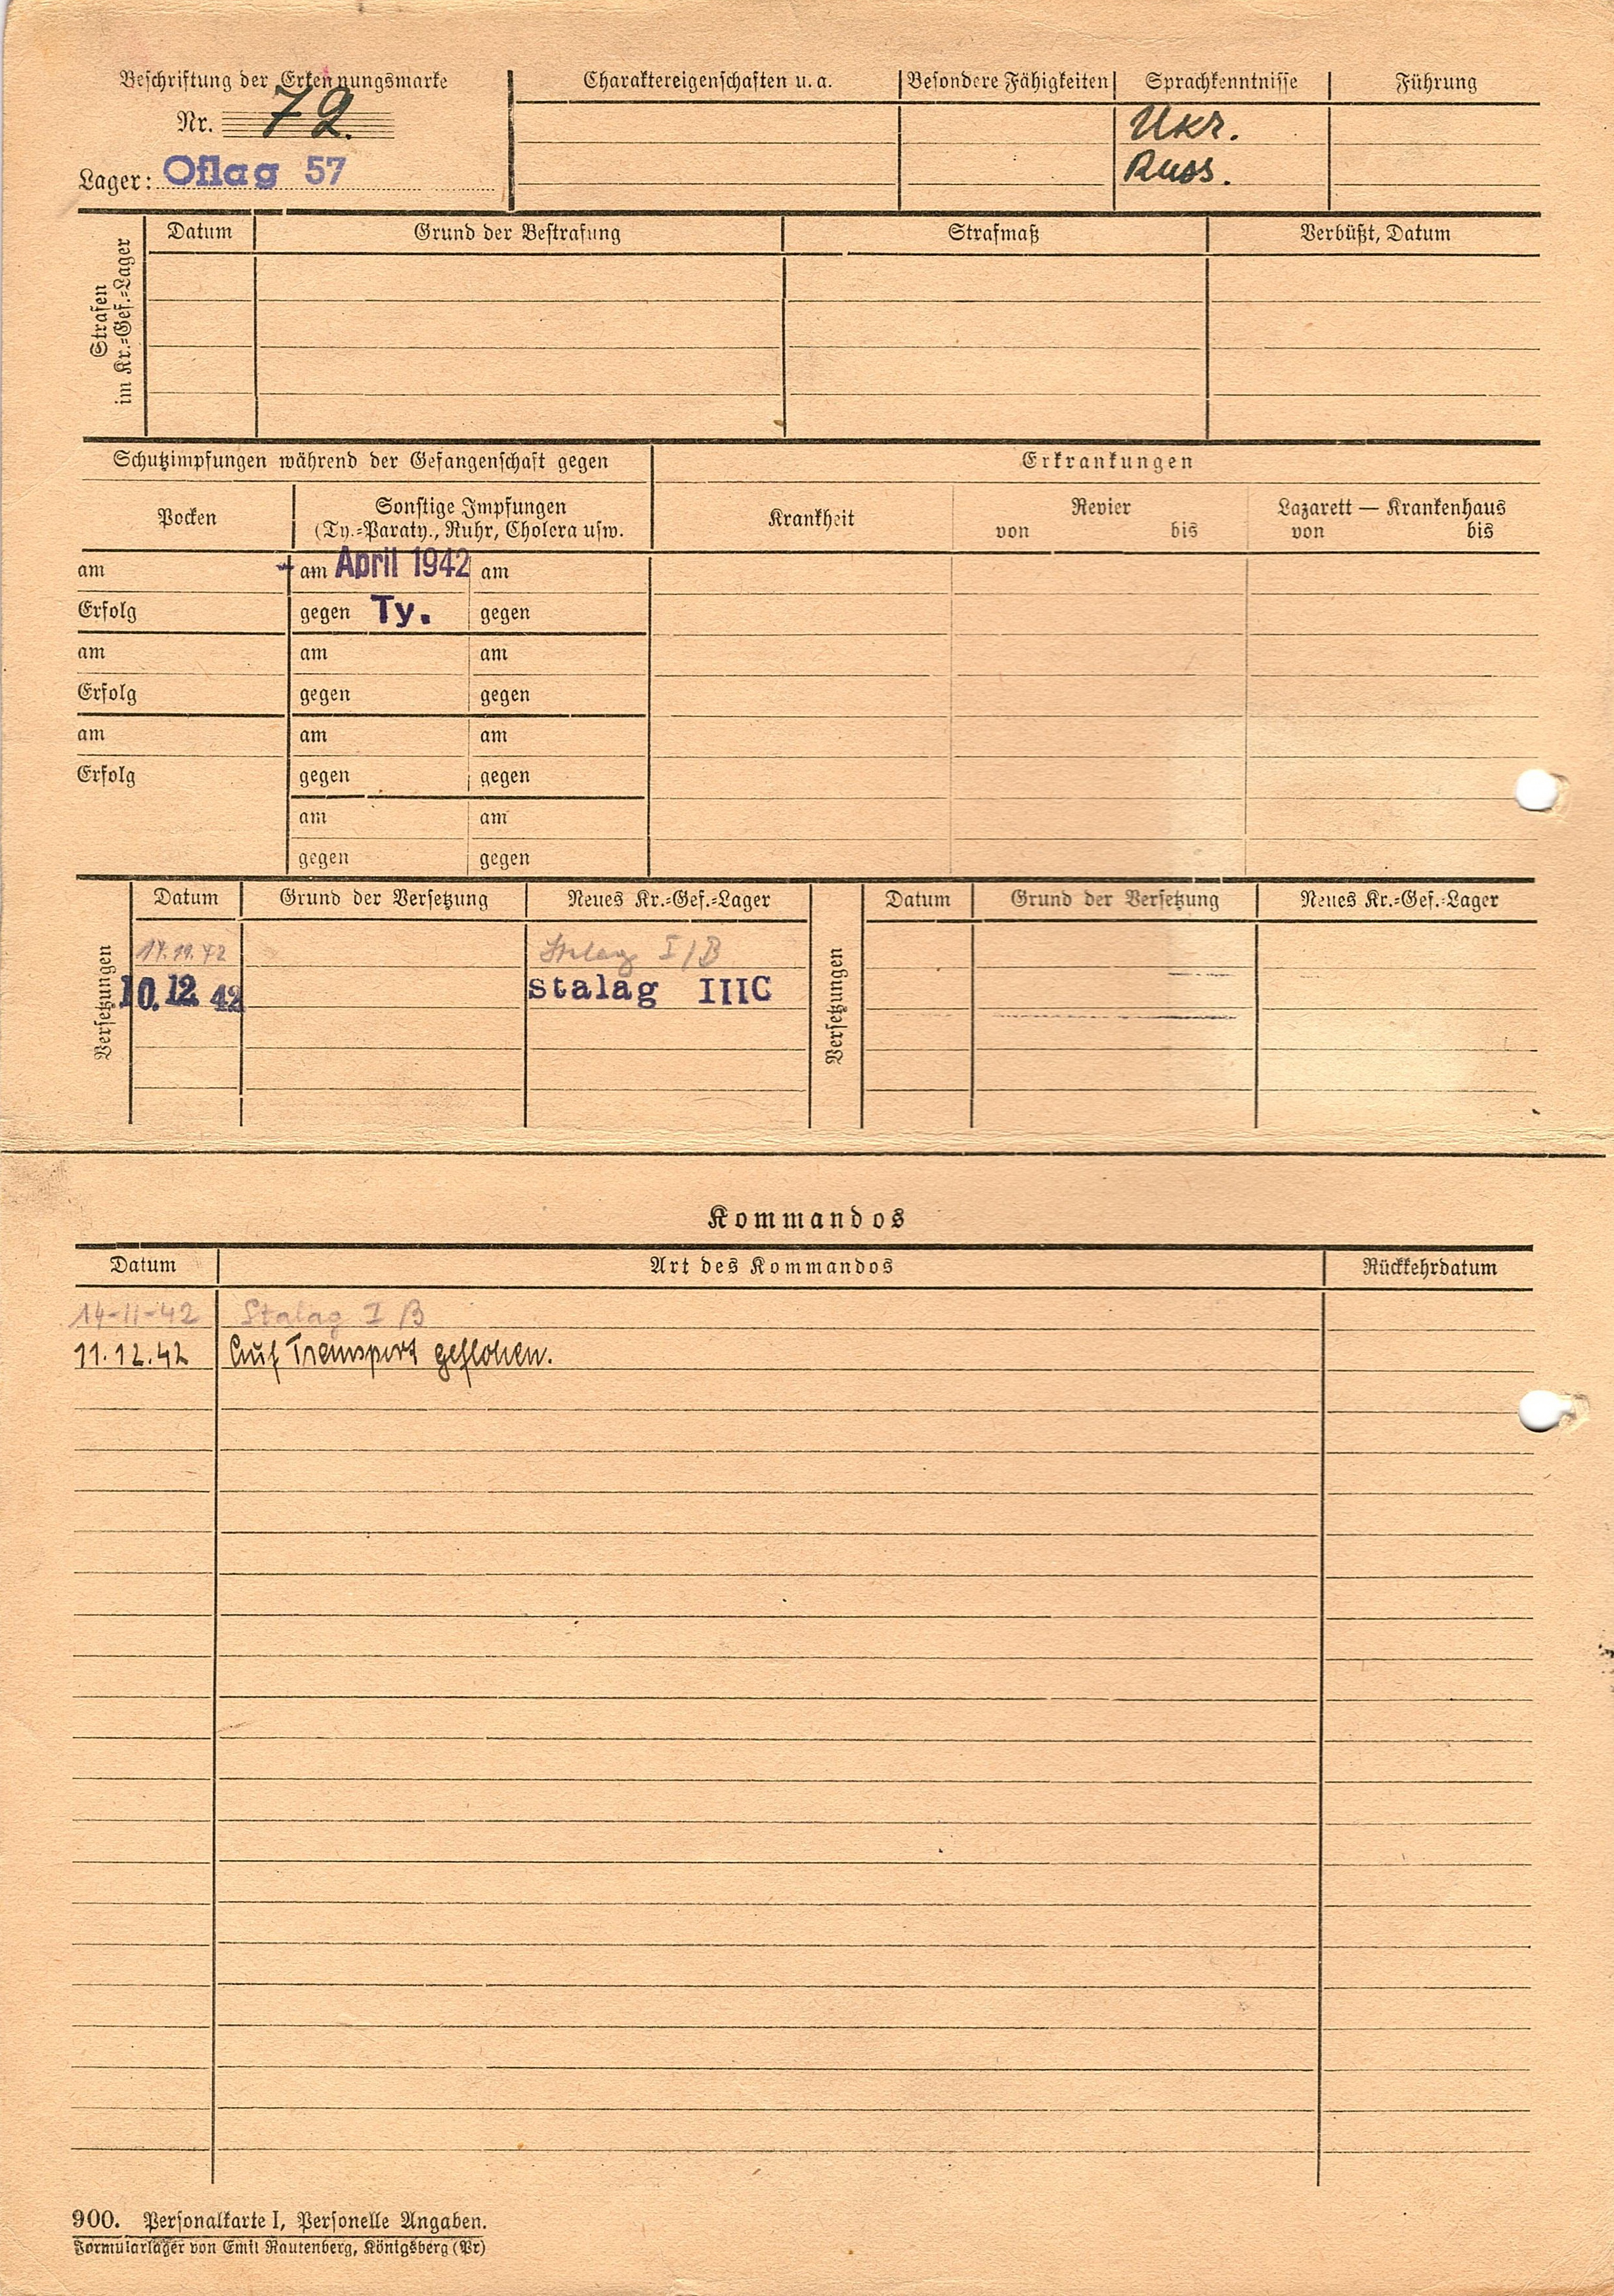 Beschriftung der Erkennungsmarke
Nr. 72.
Lager: Oflag 57
Charaktereigenschaften u. a.
Besondere Fähigkeiten
Sprachkenntnisse
Führung
Ukr.
Russ.
Strafen
im Kr.=Gef.=Lager
Datum
Grund der Bestrafung
Strafmaß
Verbüßt, Datum
Schutzimpfungen während der Gefangenschaft gegen
Erkrankungen
Pocken
Sonstige Impfungen
(Ty.=Paraty., Ruhr, Cholera usw.
Krankheit
Revier
von bis
Lazarett — Krankenhaus
von bis
am am April 1942 am
Erfolg gegen Ty. gegen
am am am
Erfolg gegen gegen
am am am
Erfolg gegen gegen
am am
gegen gegen
Versetzungen
Datum Grund der Versetzung Neues Kr.=Gef.=Lager
14.11.42 Stalag I/B
10.12 42 Stalag IIIC
Versetzungen
Datum Grund der Versetzung Neues Kr.=Gef.=Lager
Kommandos
Datum Art des Kommandos Rückkehrdatum
14-11-42 Stalag I B
11.12.42 Auf Transport geflohen.
900. Personalkarte I, Personelle Angaben.
Formularlager von Emil Rautenberg, Königsberg (Pr)